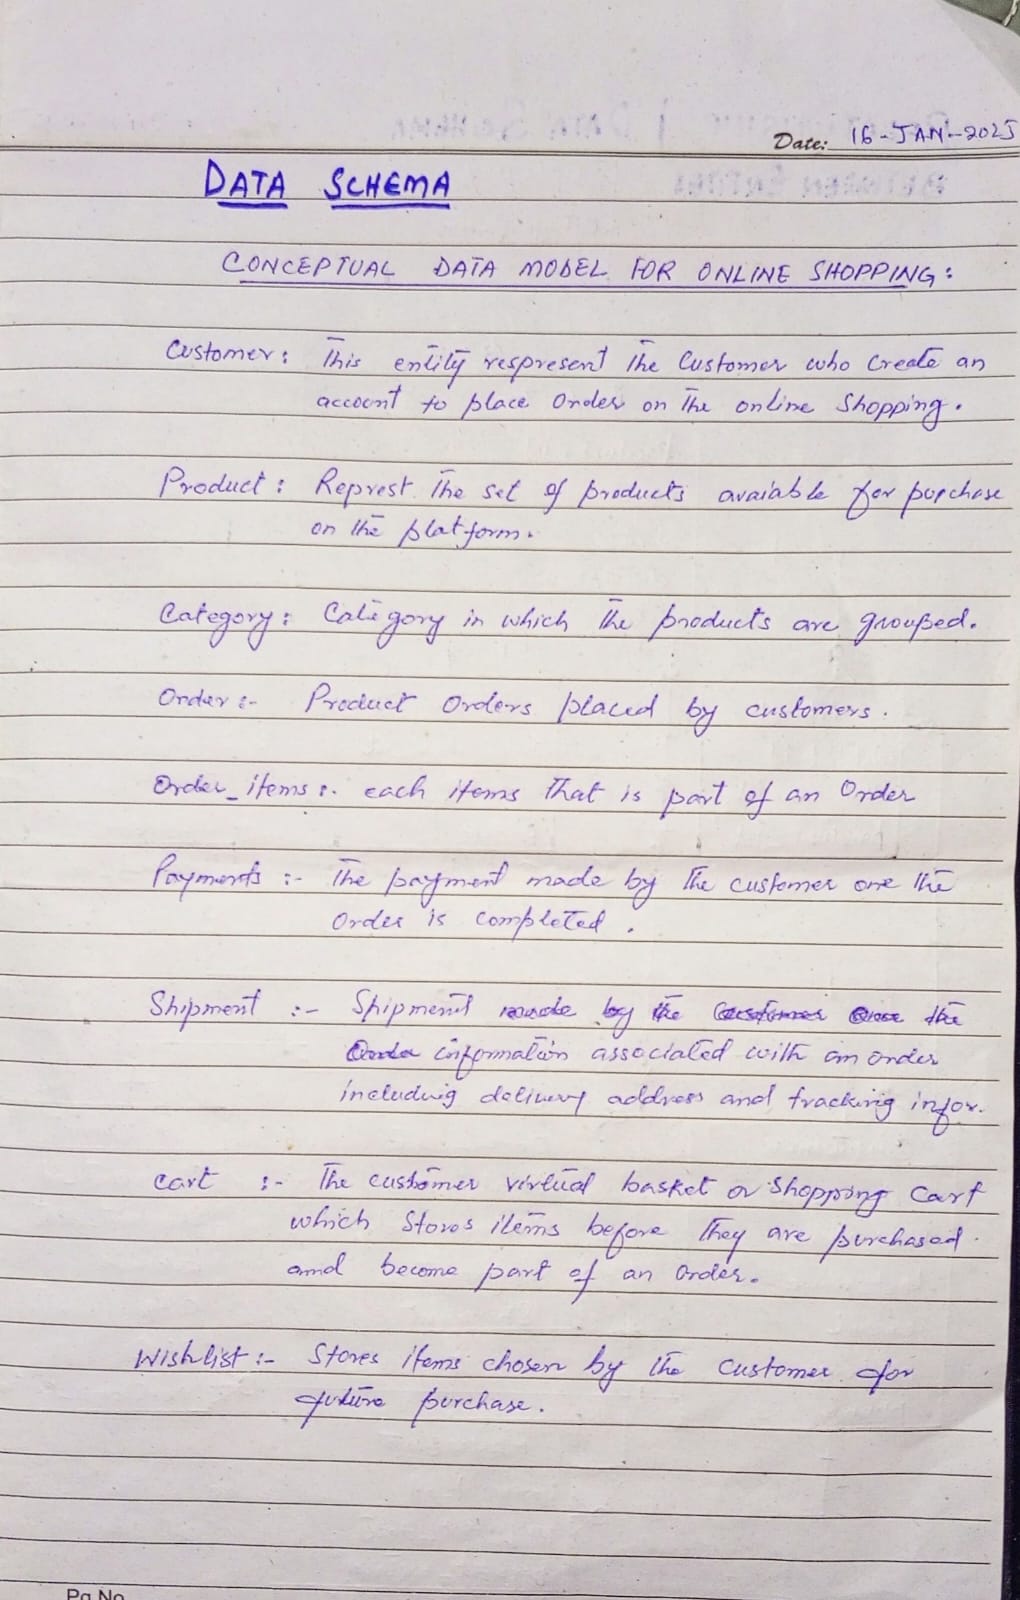 Date: 16-JAN-2025
DATA SCHEMA
CONCEPTUAL DATA MODEL FOR ONLINE SHOPPING:
Customer: This entity respresent the Customer who create an
account to place Order on the online Shopping.
Product: Represt the set of products avaiable for purchase
on the platform.
Category: Category in which the products are grouped.
Order:- Product Orders placed by customers.
Order_items:- each items that is part of an Order
Payments:- The payment made by the customer one the
Order is completed.
Shipment:- Shipment made by the Customer Once the
Order information associated with an order
including delivery address and tracking infor.
Cart:- The customer virtual basket or Shopping Cart
which Stores items before they are purchased.
and become part of an Order.
Wishlist:- Stores items chosen by the Customer for
future purchase.
Pg No